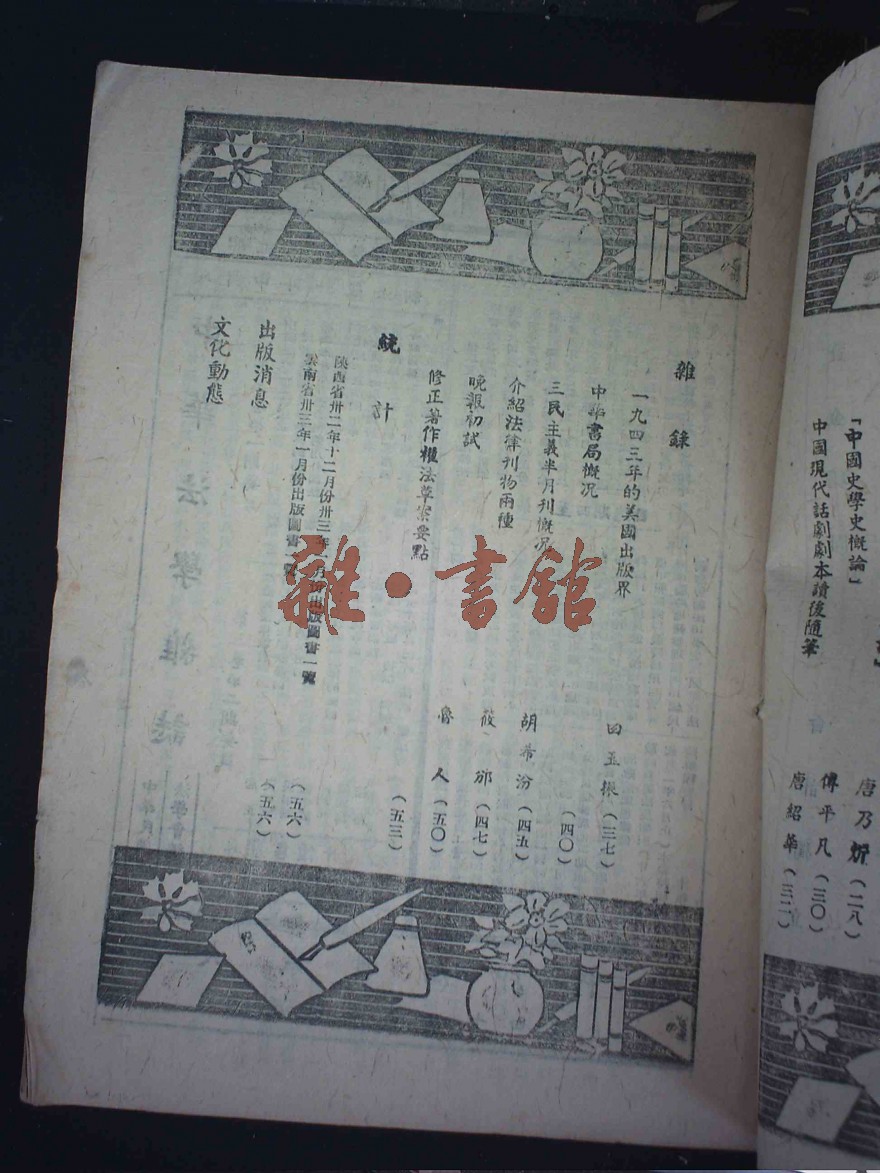 唐乃炘(二八)
「中國史學史概論」 傅平凡(三〇)
中國現代話劇劇本讀後隨筆 唐紹華(三二)
雜錄
一九四三年的美國出版界 田玉振(三七)
中華書局概況 (四〇)
三民主義半月刊概況 胡希汾(四五)
介紹法律刊物兩種 筱邠(四七)
晚報初試 魯人(五〇)
修正著作權法草案要點 (五三)
統計
陝西省卅二年十二月份卅三年一月份出版圖書一覽
雲南省卅三年一月份出版圖書一覽
出版消息 (五六)
文化動態 (五六)
雜·書館